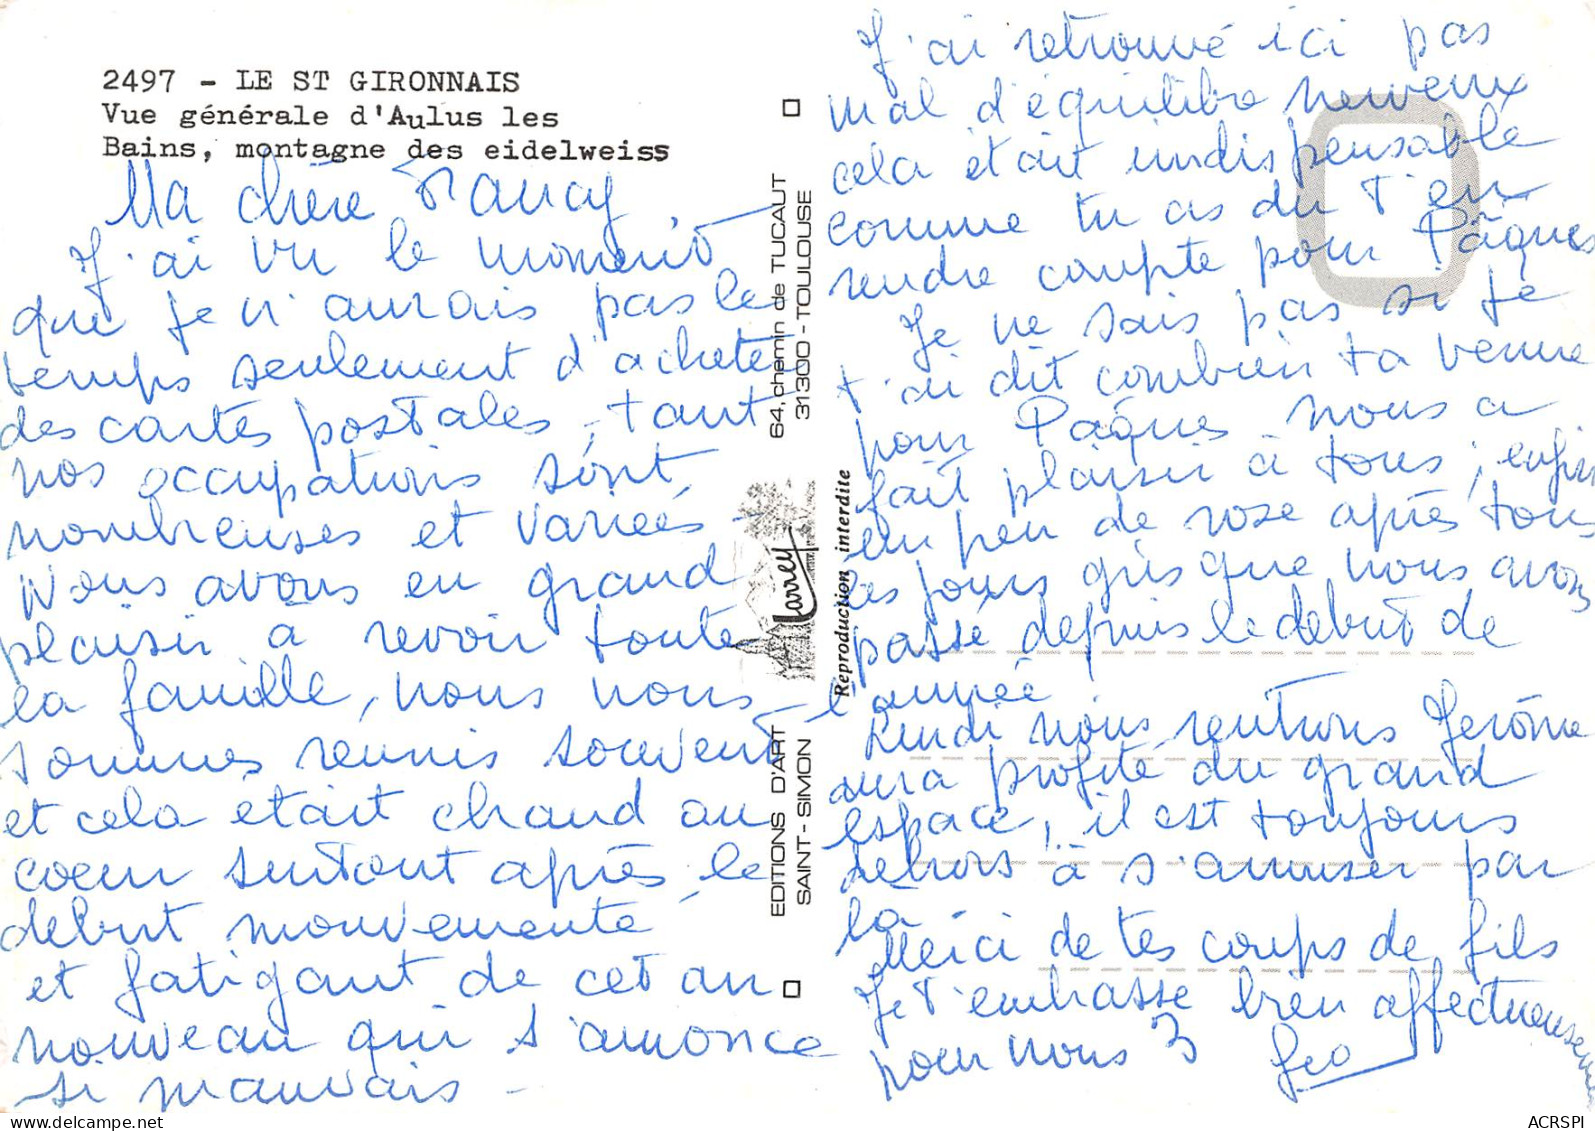 2497 - LE ST GIRONNAIS
Vue générale d'Aulus les
Bains, montagne des eidelweiss
Ma chère Francy
J'ai vu le moment
que je n'aurais pas le
temps seulement d'acheter
des cartes postales, tant
nos occupations sont
nombreuses et variées -
Nous avons eu grand
plaisir à revoir toute
la famille, nous nous
sommes reunis souvent
et cela etait chaud au
coeur surtout après le
debut mouvementé
et fatigant de cet an
nouveau qui s'annonce
si mauvais -
EDITIONS D'ART
SAINT-SIMON
Larrey
64, chemin de TUCAUT
31300 - TOULOUSE
Reproduction interdite
J'ai retrouvé ici pas
mal d'équilibre nerveux
cela etait indispensable
comme tu as du t'en
rendre compte pour Pâques
Je ne sais pas si je
t'ai dit combien ta venue
pour Pâques nous a
fait plaisir à tous ; enfin
un peu de rose après tous
les jours gris que nous avons
passé depuis le debut de
l'année
Lundi nous rentrons Jerôme
aura profité du grand
espace, il est toujours
dehors à s'amuser par
là
Merci de tes coups de fils
Je t'embrasse bien affectueusement
pour nous 3 Geo
ACRSPI